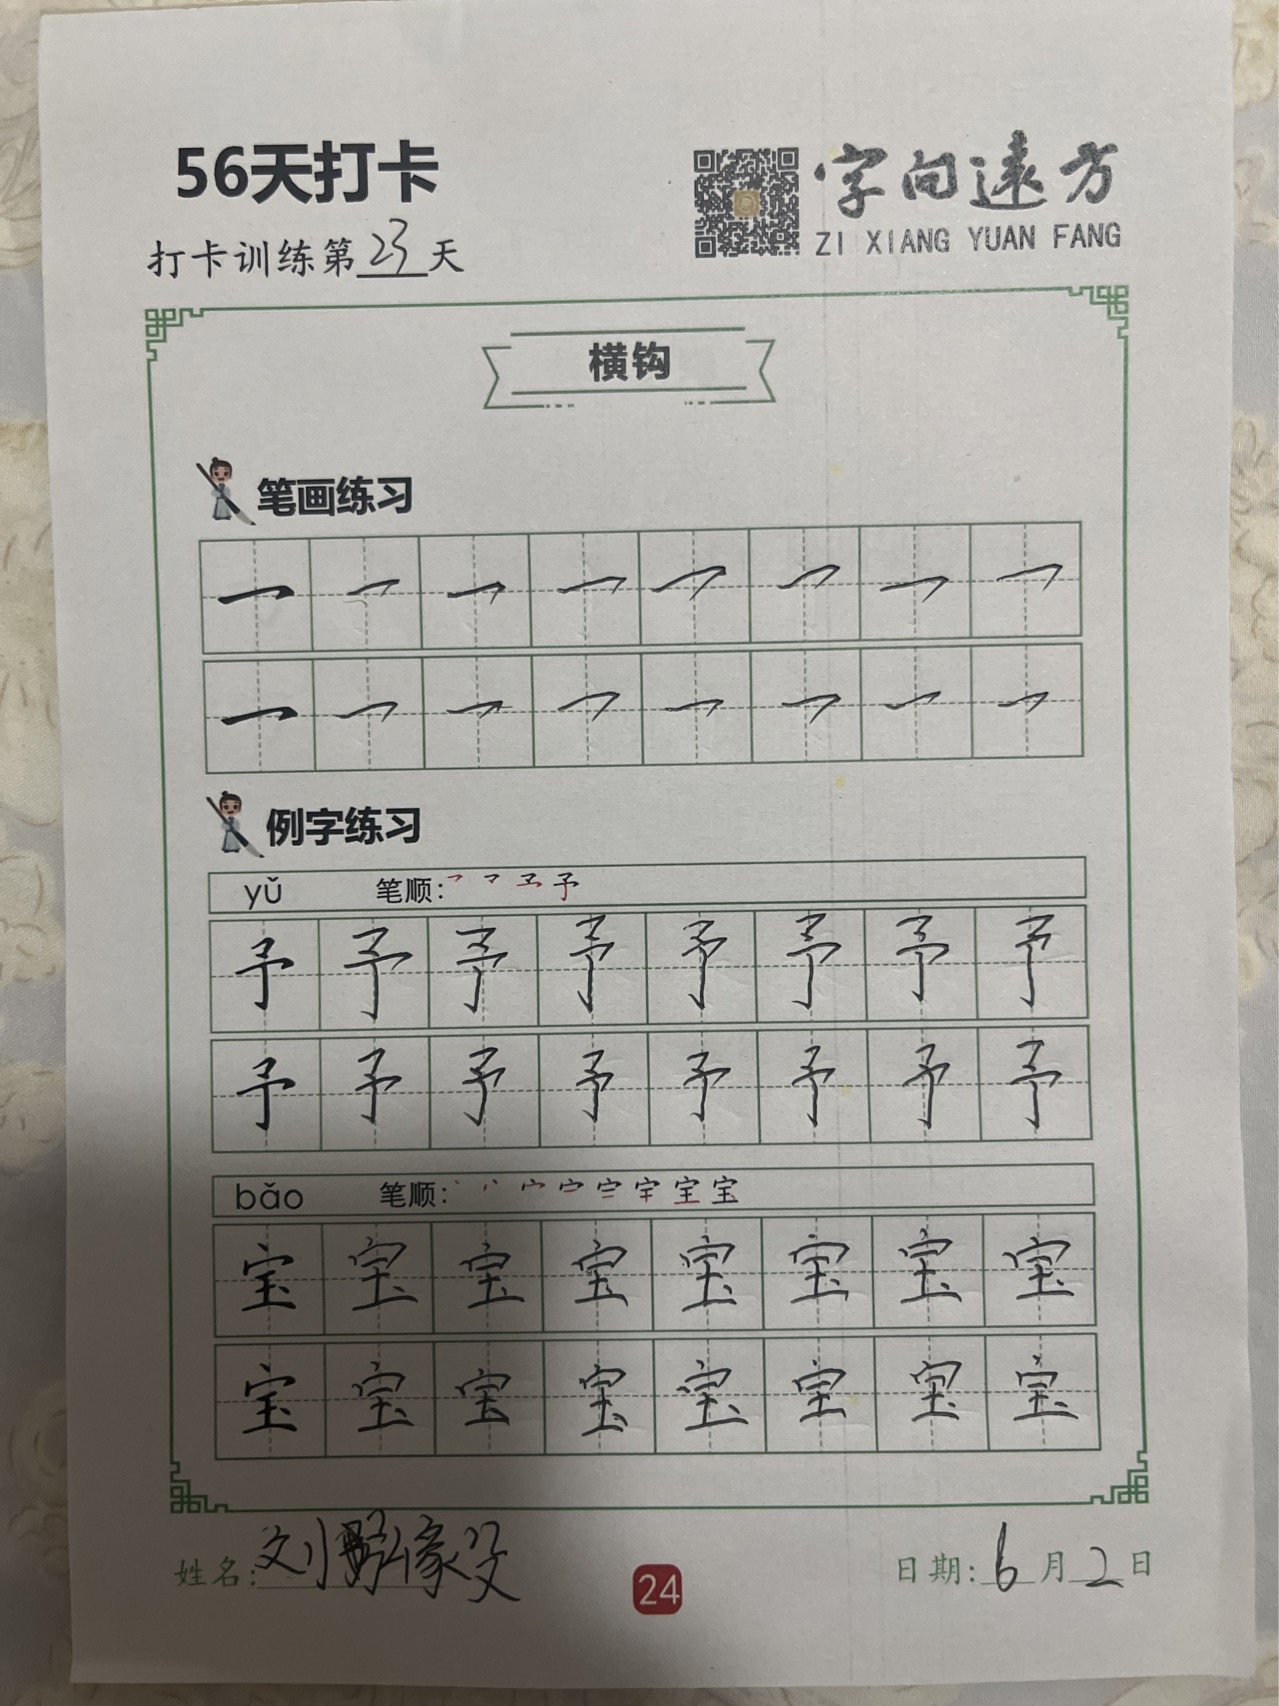 56天打卡
字向遠方
ZI XIANG YUAN FANG
打卡训练第23天
横钩
笔画练习
㇖ ㇖ ㇖ ㇖ ㇖ ㇖ ㇖ ㇖
㇖ ㇖ ㇖ ㇖ ㇖ ㇖ ㇖ ㇖
例字练习
yǔ 笔顺:
予 予 予 予 予 予 予 予
予 予 予 予 予 予 予 予
bǎo 笔顺:
宝 宝 宝 宝 宝 宝 宝 宝
宝 宝 宝 宝 宝 宝 宝 宝
姓名:刘
24
日期:6月2日